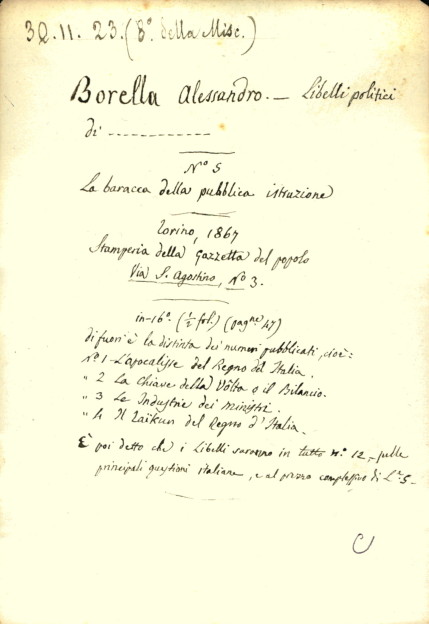 32.11.23. (8.º della Misc.)
Borella Alessandro. — Libelli politici
di ------------
Nº 5
La baracca della pubblica istruzione
Torino, 1867
Stamperia della Gazzetta del popolo
Via S. Agostino, Nº 3.
in-16º. (½ fol.) (pagne 47)
di fuori è la distinta dei numeri pubblicati, cioè:
Nº 1 - L'apocalisse del Regno d'Italia.
" 2 La Chiave della Vôlta o il Bilancio.
" 3 Le Industrie dei ministri.
" 4 Il Taïkun del Regno d'Italia.
È poi detto che i Libelli saranno in tutto nº 12, sulle
principali quistioni italiane, e al prezzo complessivo di L. 5 -